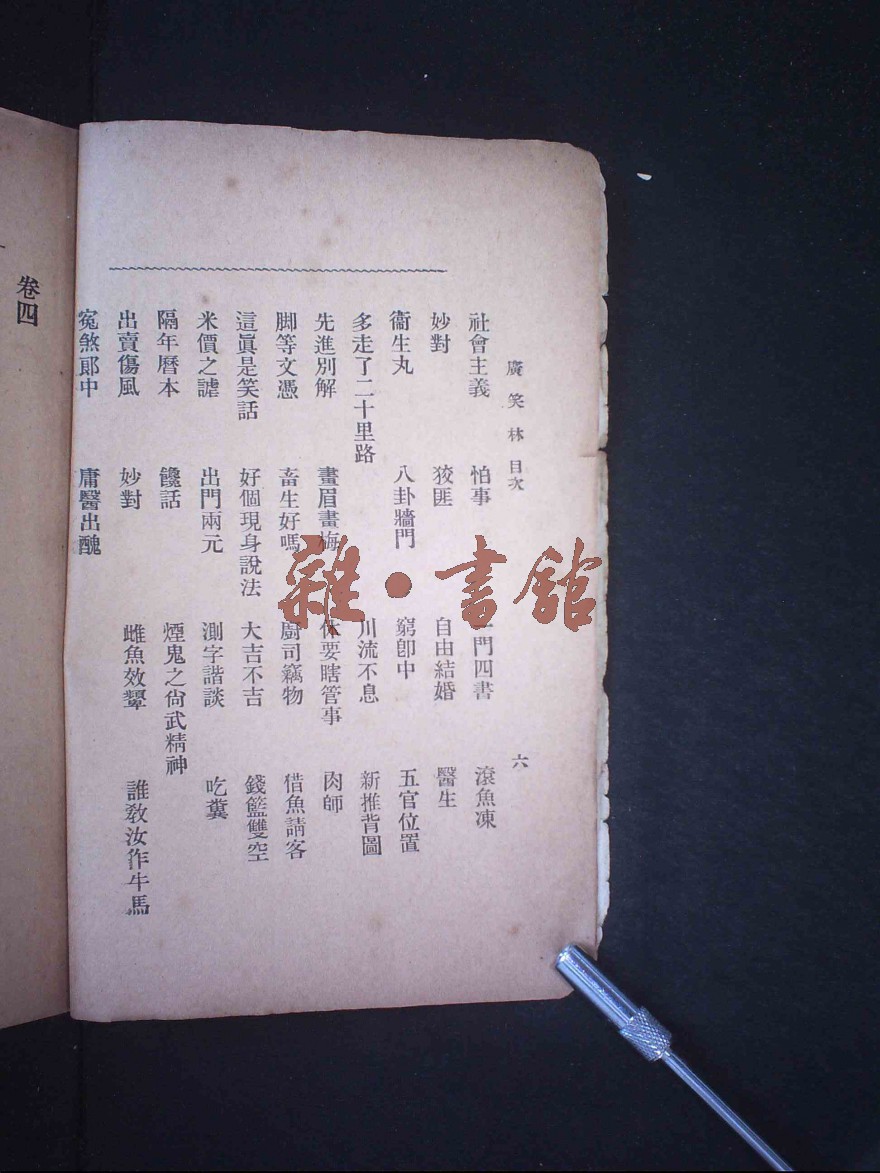 廣笑林目次 六
社會主義 怕事 一門四書 滾魚凍
妙對 狡匪 自由結婚 醫生
衞生丸 八卦牆門 窮卽中 五官位置
多走了二十里路 川流不息 新推背圖
先進別解 畫眉畫梅 休要瞎管事 肉師
脚等文憑 畜生好嗎 廚司竊物 借魚請客
這眞是笑話 好個現身說法 大吉不吉 錢籃雙空
米價之謔 出門兩元 測字諧談 吃糞
隔年曆本 饞話 煙鬼之尙武精神
出賣傷風 妙對 雌魚效顰 誰敎汝作牛馬
寃煞郞中 庸醫出醜
卷四
雜·書館